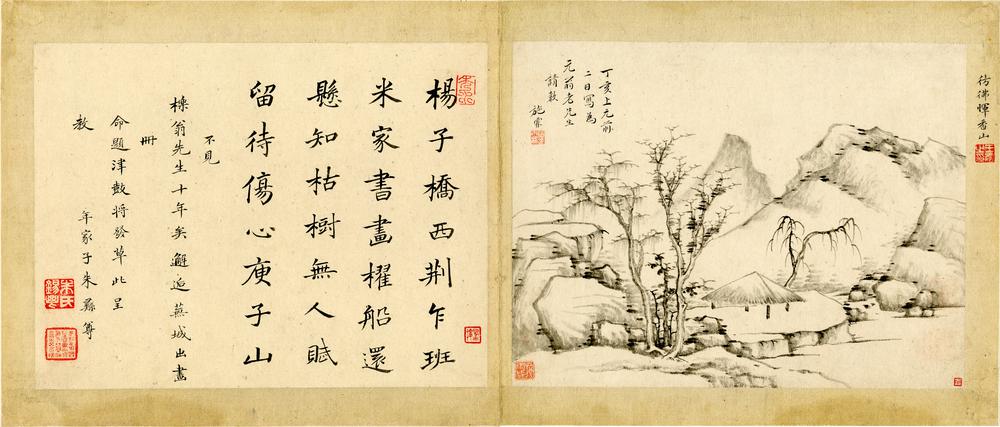 仿彿惲香山
丁亥上元前
二日寫為
元翁老先生
請教 施霖
楊子橋西荊乍班
米家書畫櫂船還
懸知枯樹無人賦
留待傷心庾子山
不見
櫟翁先生十年矣邂逅蕪城出畫
冊
命題津鼓將發草此呈
教
年家子朱彝尊
朱氏錫鬯